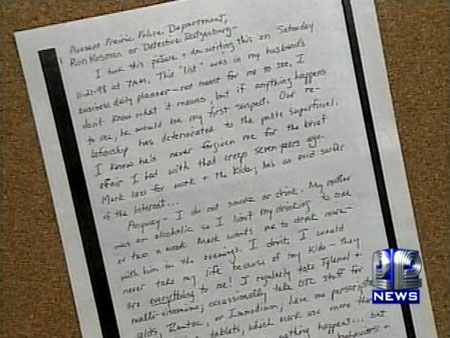 Pleasant Prairie Police Department,
Ron Kosman or Detective Ratzburg -
I took this picture & am writing this on Saturday
11-21-98 at 7AM. This "list" was in my husband's
business daily planner - not meant for me to see, I
don't know what it means, but if anything happens
to me, he would be my first suspect. Our re-
lationship has deteriorated to the polite superficial.
I know he's never forgiven me for the brief
affair I had with that creep seven years ago.
Mark lives for work & the kids; he's an avid surfer
of the Internet...
Anyway - I do not smoke or drink. My mother
was an alcoholic, so I limit my drinking to one
or two a week. Mark wants me to drink more -
with him in the evenings. I don't. I would
never take my life because of my kids - they
are everything to me! I regularly take Tylenol &
multi-vitamins; occassionally take OTC stuff for
colds, Zantac, or Immodium; have one prescription
tablets, which Mark use more th
nothing happens... but
behaviors &
12
NEWS